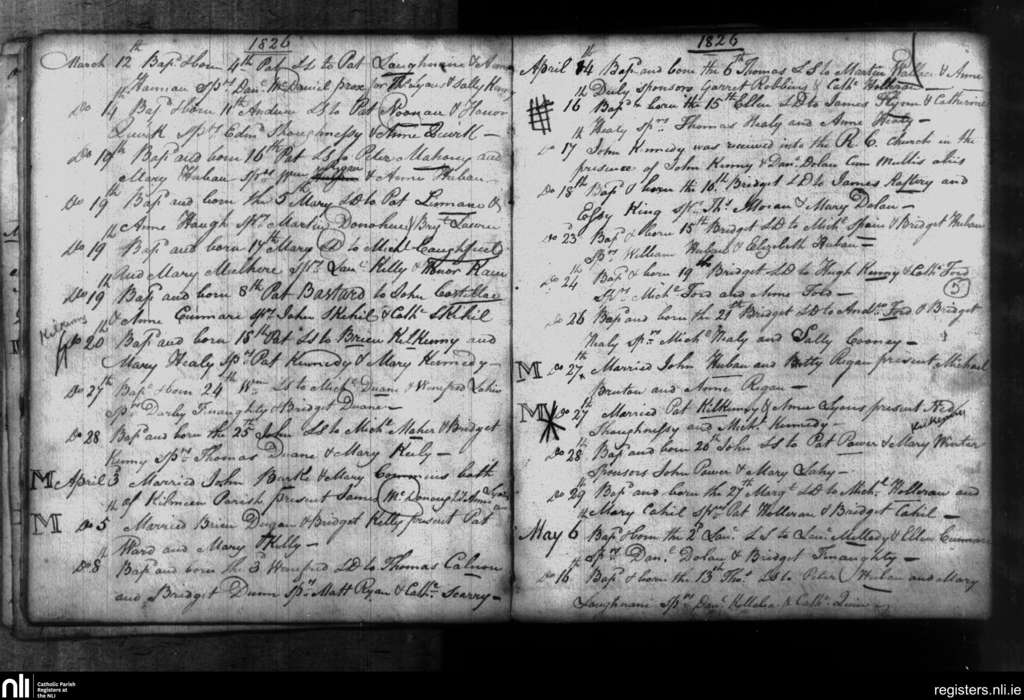 1826
March 12th Bapd & born 4th Pat LS to Pat Loughnane & Anne
Hannan Sprs Danl McDaniel prox for Ths Lyons & Sally Hany
Do 14 Bapd & born 11th Andrew LS to Pat Noonan & Honor
Quirk Sprs Edmd Shaughnessy & Anne Quirk —
Do 19th Bapd and born 16th Pat LS to Peter Mahony and
Mary Huban Sprs Wm & Anne Huban —
Do 19th Bapd and born the 5th Mary LD to Pat Linnane &
Anne Haugh Sprs Martin Donohue & Brigt
Do 19th Bapd and born 17th Mary LD to Michl
and Mary Sprs Laue Kelly & Honor
Do 19th Bapd and born 8th Pat Bastard to John Costillae
& Anne Cunnare Sprs John Skehil & Cathe Skehil
Kilkenny
Do 20th Bapd and born 15th Pat LS to Brien Kilkenny and
Mary Healy Sprs Pat Kennedy & Mary Kennedy —
Do 27th Bapd & born 24th Wm LS to Michl Duane & Winifred
Sprs Darby Finaughty & Bridget Duane —
Do 28 Bapd and born the 25th John LS to Michl Maher & Bridget
Kenny Sprs Thomas Duane & Mary Kiely —
M April 3 Married John Burke & Mary Commins both
of Kilmeen Parish present James McDonough & Anne
M Do 5th Married Brien Dugan & Bridget Kelly present Pat
Ward and Mary Kelly —
Do 8 Bapd and born the 3d Winifred LD to Thomas Calnon
and Bridget Dunn Sprs Matt Ryan & Cathe Scarry —
1826
April 14th Bapd and born the 6th Thomas LS to Martin & Anne
Duly sponsors Garret Robbins & Cathe Holleran
16th Bapd & born the 15th Ellen LD to James Flynn & Catherine
Healy Sprs Thomas Healy and Anne Healy —
Do 17th John Kennedy was received into the R.C. Church in the
presence of John Kenny & Danl Dolan Cum Multis aliis
Do 18th Bapd & born the 10th Bridget LD to James Raftery and
King Sprs Ths Moran & Mary Dolan —
Do 23 Bapd & born 15th Bridget LD to Michl Spain & Bridget Huban
Sprs William Huban & Elizabeth Huban —
Do 24th Bapd & born 19th Bridget LD to Hugh Kenny & Cathe Ford
Sprs Michl Ford and Anne Ford —
5
Do 26 Bapd and born the 21st Bridget LD to Andw Ford & Bridget
Healy Sprs Michl Healy and Sally Cooney —
M Do 27th Married John Huban and Betty Regan present Michael
Bruton and Anne Regan —
M Do 27th Married Pat Kilkenny & Anne Lyons present
Shaughnessy and Michl Kennedy —
Do 28th Bapd and born 20th John LS to Pat Power & Mary Winter
Sponsors John Power & Mary Fahy —
Do 29 Bapd and born the 27th Margt LD to Michl Holleran and
Mary Cahil Sprs Pat Holleran & Bridget Cahil —
May 6th Bapd & born the 2d Laue LS to Laue Mullady & Ellen Cunnare
Sprs Danl Dolan & Bridget Finaughty —
Do 16th Bapd & born the 13th Ths LS to Peter Huban and Mary
Loughnane Sprs Danl Kellelea & Cathe Quinn
nli
Catholic Parish
Registers at
the NLI
registers.nli.ie